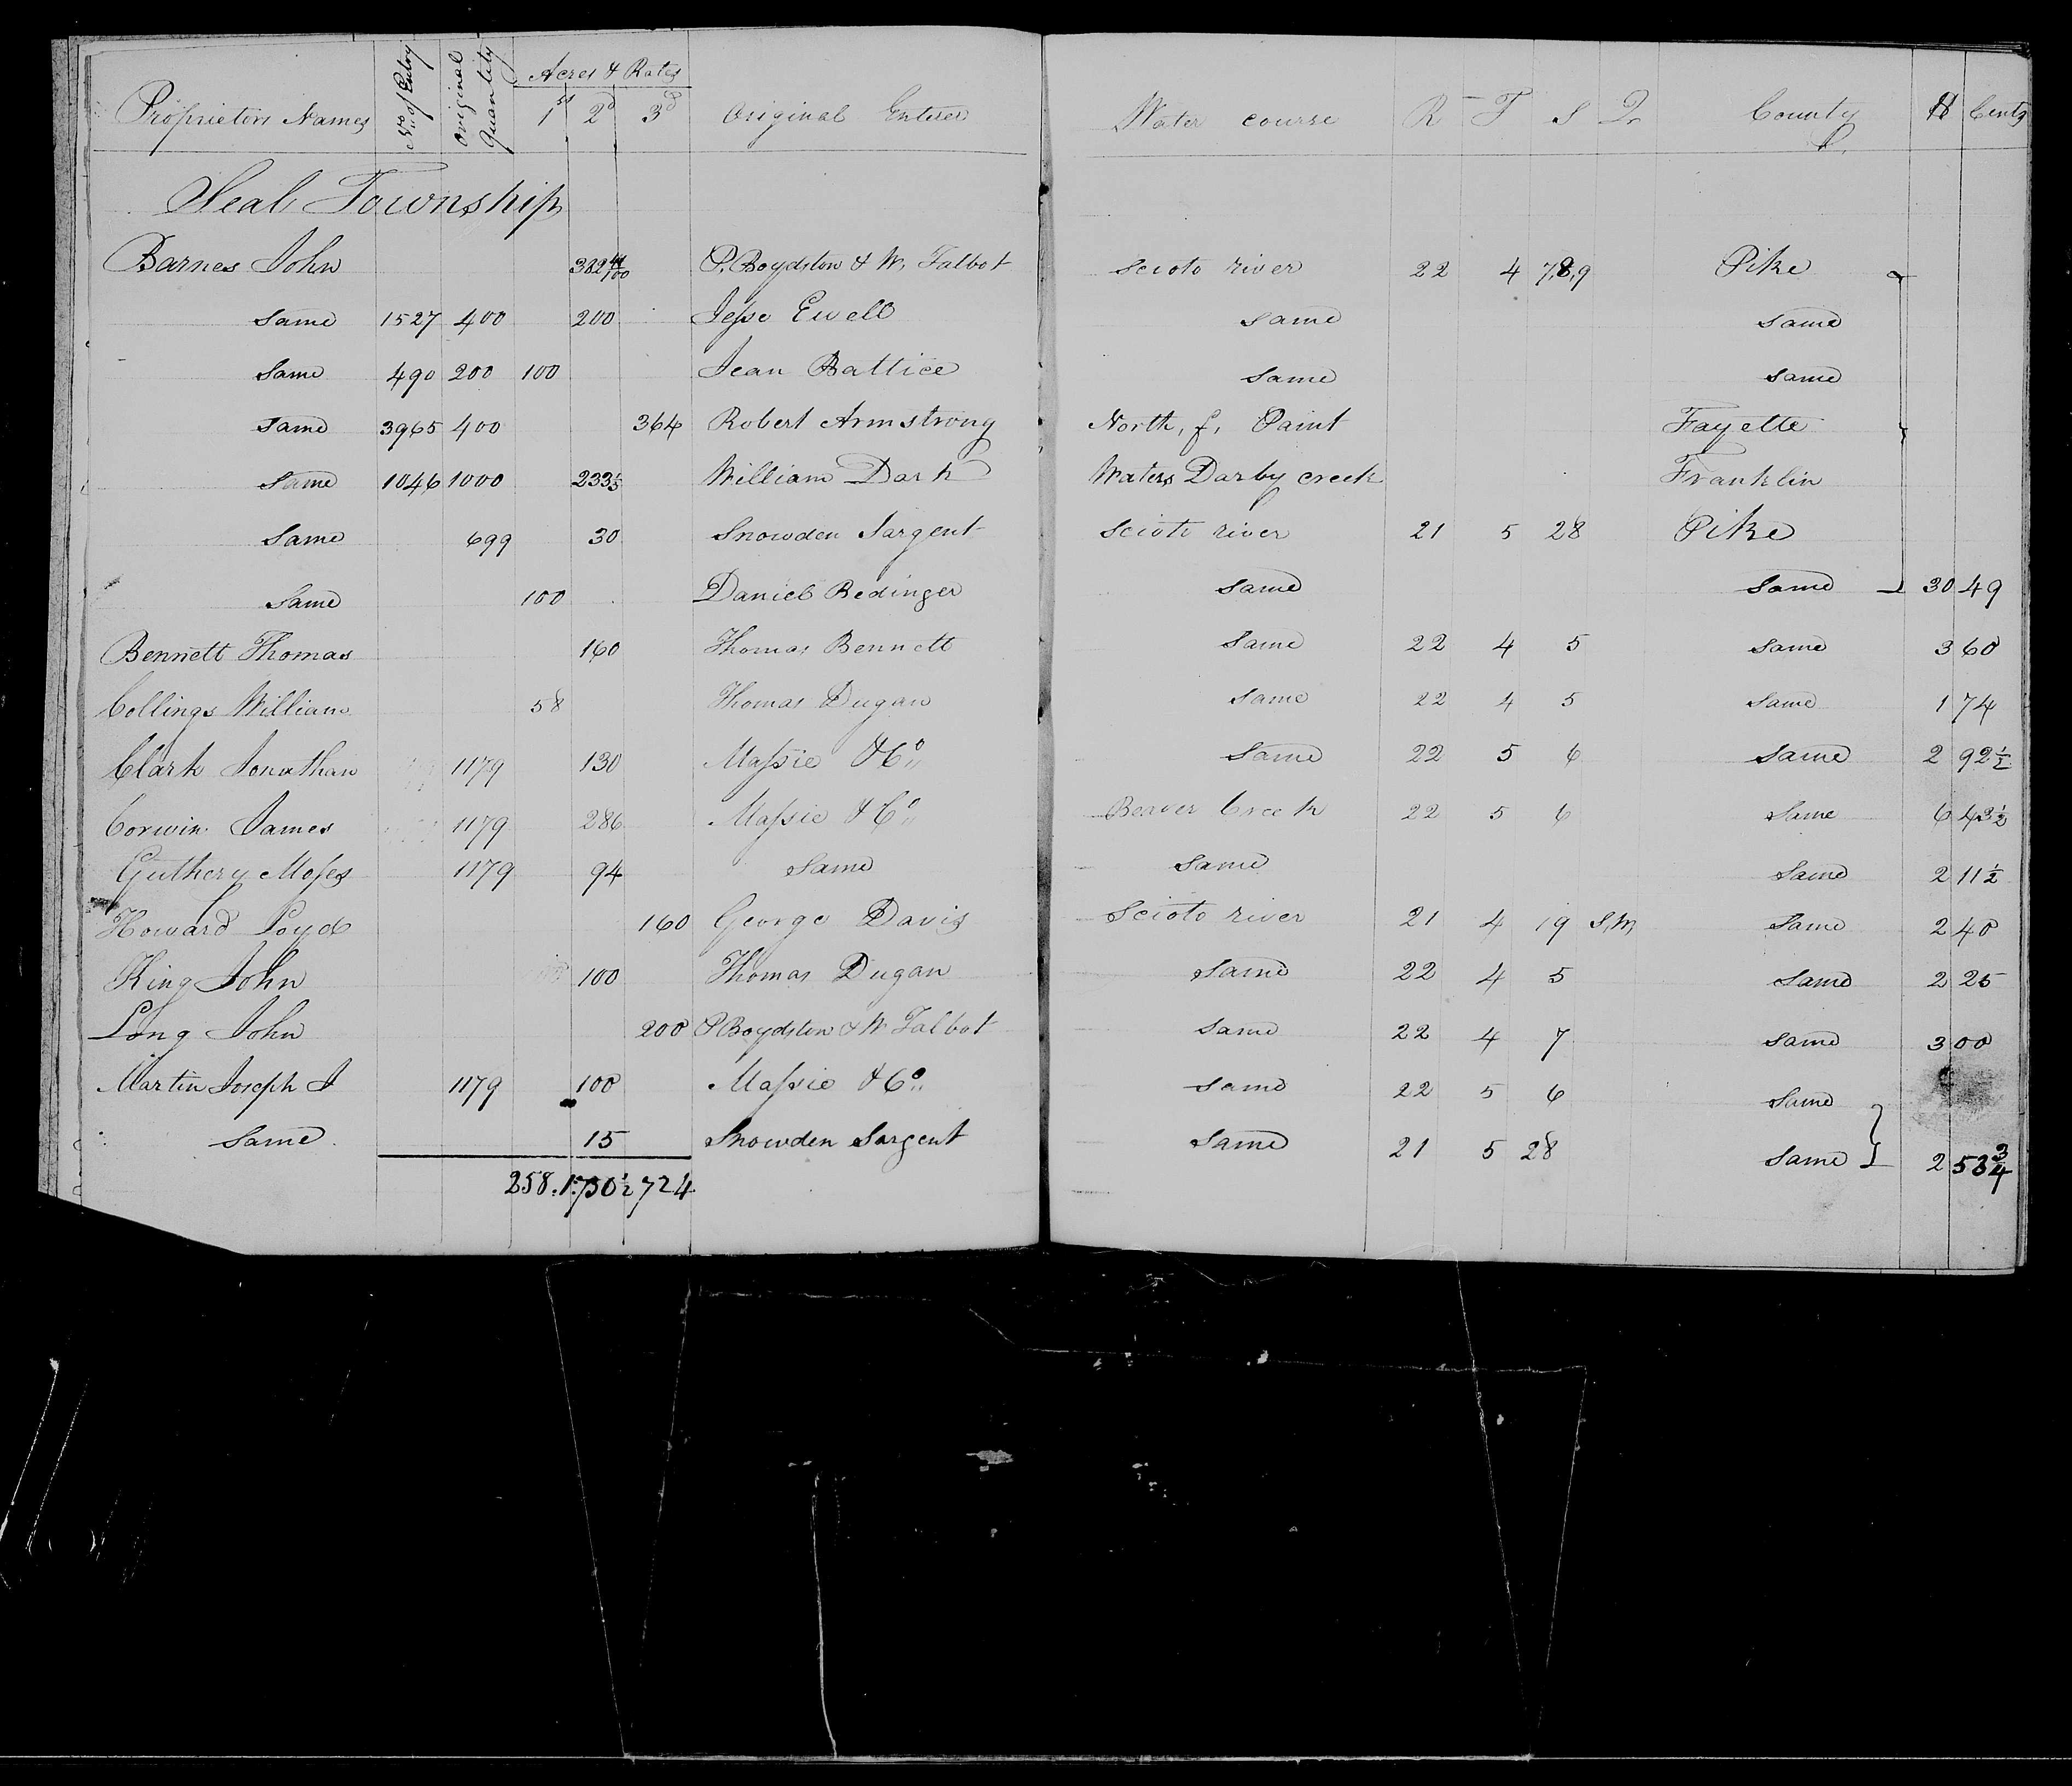 Proprietors Names No. of Entry Original Quantity Acres & Rates 1st 2d 3d Original Enterer Water course R T S Qr County $ Cents
Seal Township
Barnes John 382 41/100 P. Boydston & W. Talbot Scioto river 22 4 7,8,9 Pike
Same 1527 400 200 Jesse Ewell Same Same
Same 490 200 100 Jean Battice Same Same
Same 3965 400 364 Robert Armstrong North, f, Paint Fayette
Same 1046 1000 233 1/3 William Dark Waters Darby creek Franklin
Same 699 30 Snowden Sargent Scioto river 21 5 28 Pike
Same 100 Daniel Bedinger Same Same 30 49
Bennett Thomas 160 Thomas Bennett Same 22 4 5 Same 3 60
Collings William 58 Thomas Dugan Same 22 4 5 Same 1 74
Clark Jonathan 1179 130 Massie & Co Same 22 5 6 Same 2 92 1/2
Corwin James 1179 286 Massie & Co Beaver Creek 22 5 6 Same 6 43 1/2
Guthery Moses 1179 94 Same Same Same 2 11 1/2
Howard Loyd 160 George Davis Scioto river 21 4 19 S,W, Same 2 40
King John 100 Thomas Dugan Same 22 4 5 Same 2 25
Long John 200 P Boydston & W Talbot Same 22 4 7 Same 3 00
Martin Joseph J 1179 100 Massie & Co Same 22 5 6 Same
Same 15 Snowden Sargent Same 21 5 28 Same 2 58 3/4
258. 1730 1/2 724